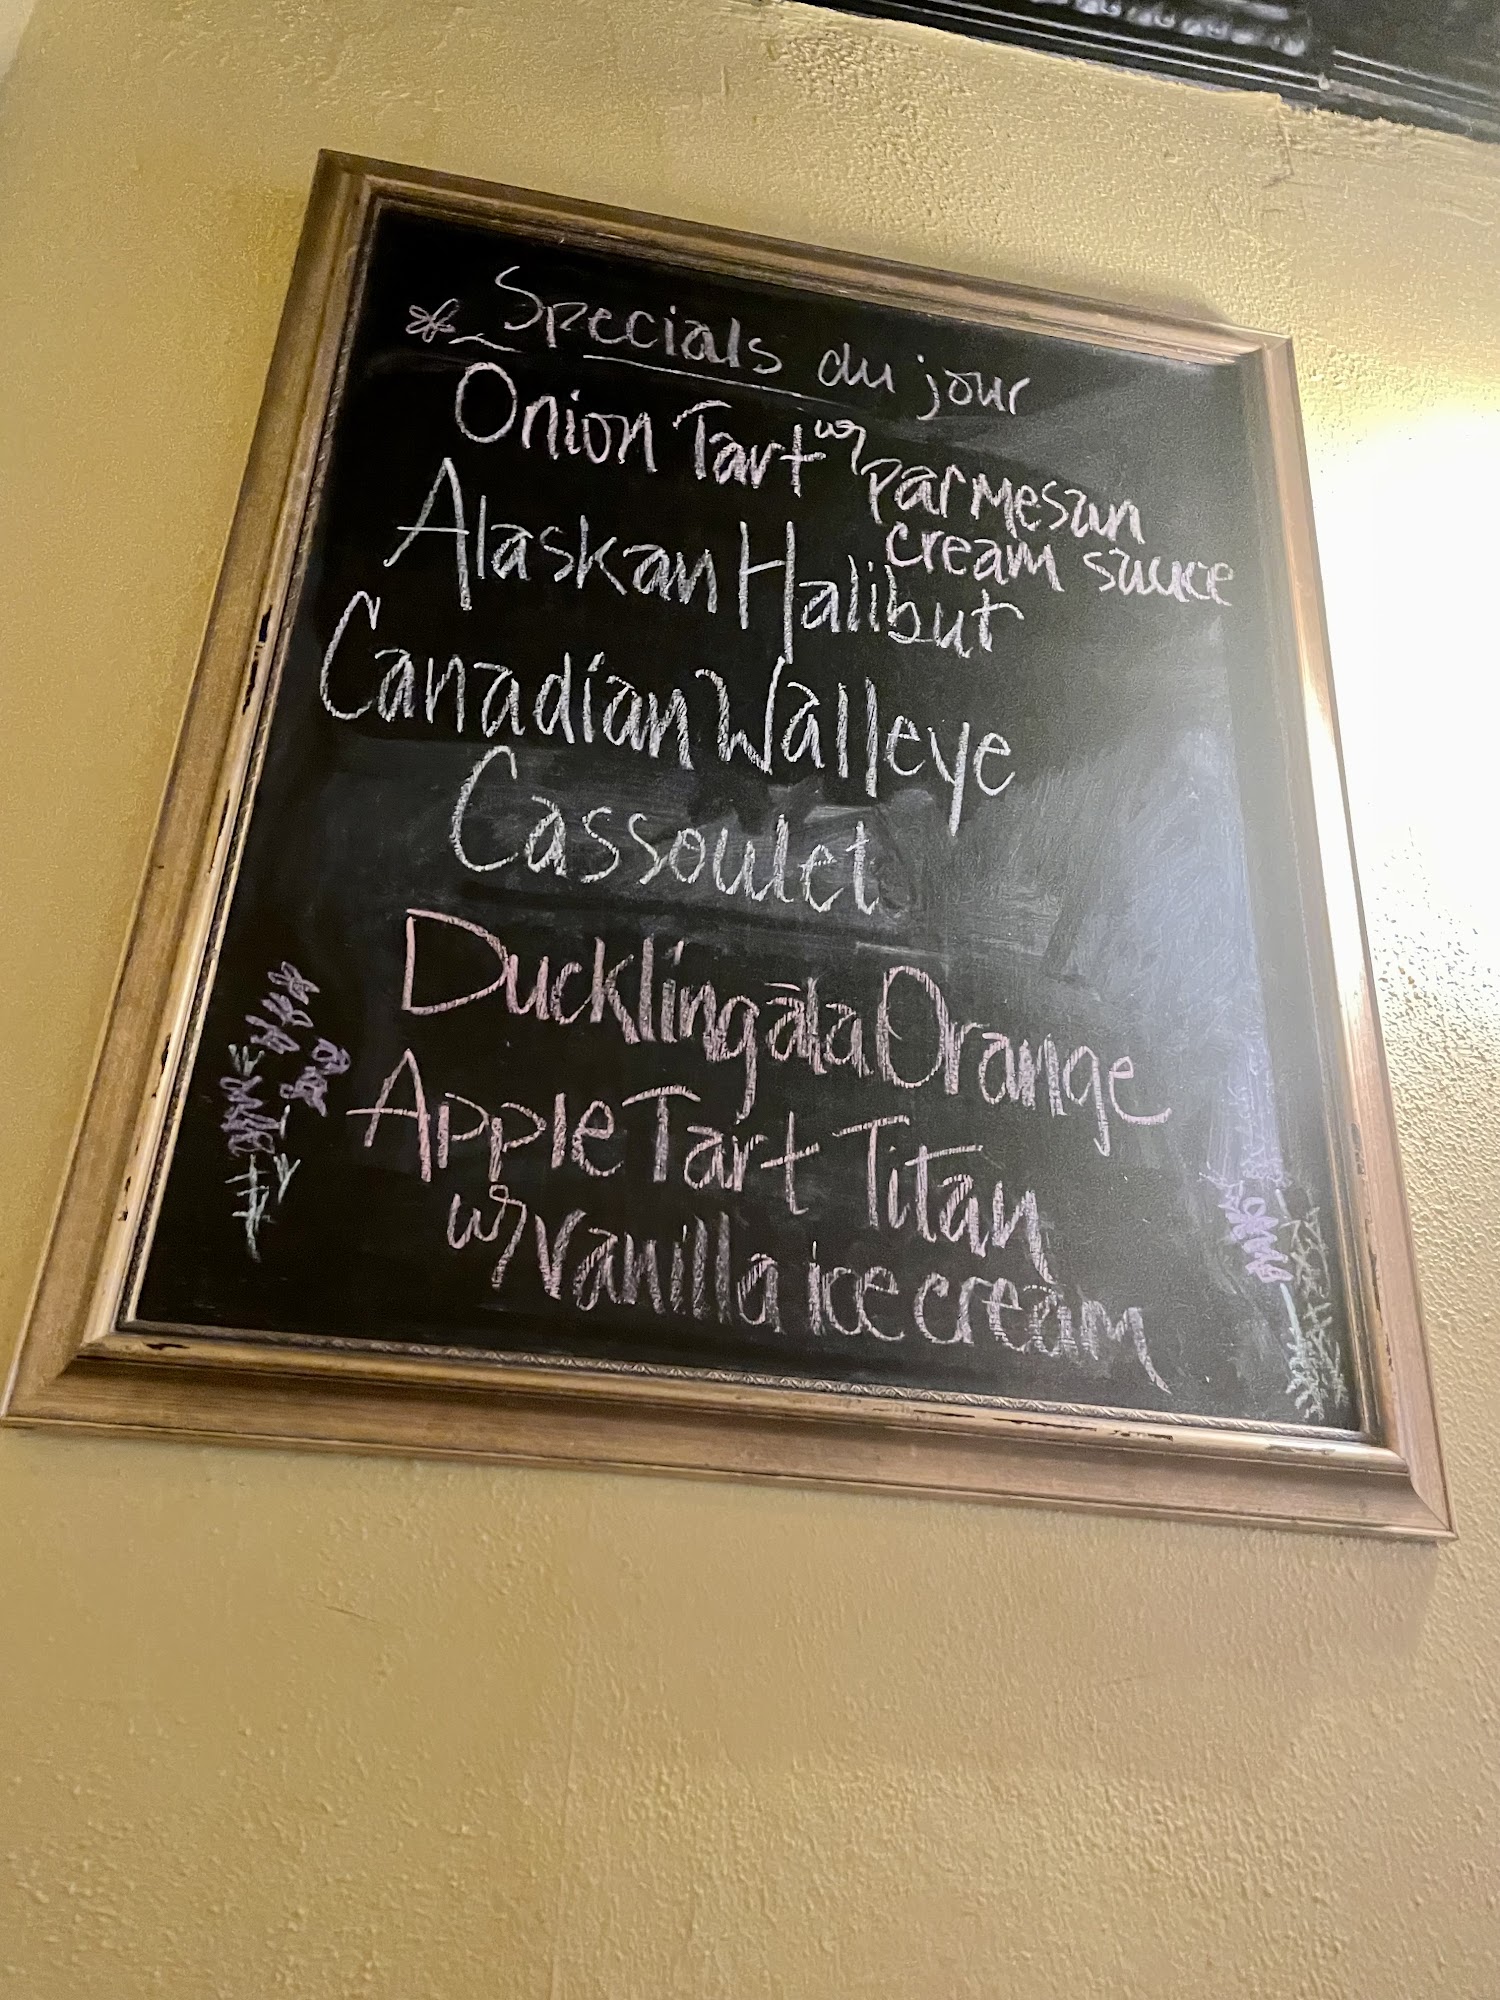 Specials du jour
Onion Tart w/ parmesan
cream sauce
Alaskan Halibut
Canadian Walleye
Cassoulet
Duckling à la Orange
Apple Tart Titan
w/ vanilla ice cream